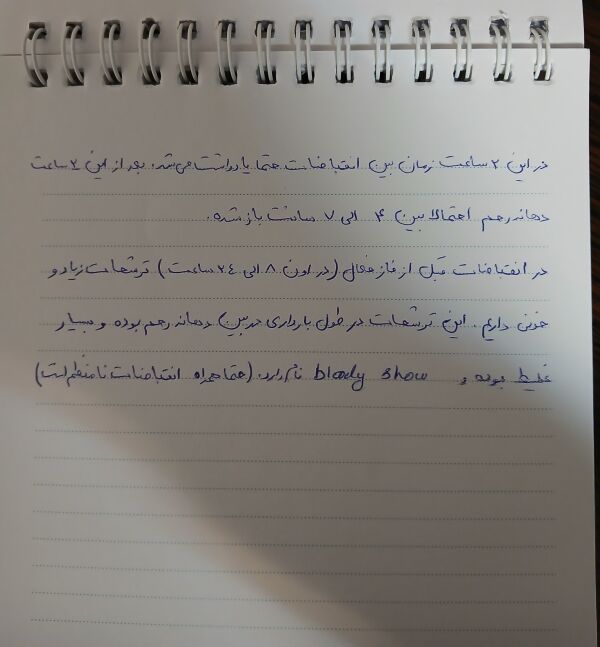 در این ۲ ساعت زمان بین انقباضات حتما یادداشت می شد. بعد از این ۲ ساعت
دهانه رحم احتمالا بین ۴ الی ۷ سانت باز شده.
در انقباضات قبل از فاز فعال (در اون ۸ الی ۲۴ ساعت) ترشحات زیاد و
خونی داریم. این ترشحات در طول بارداری در بین دهانه رحم بوده و بسیار
غلیظ بوده و bloody show نام دارد. (حتما همراه انقباضات نامنظم است)